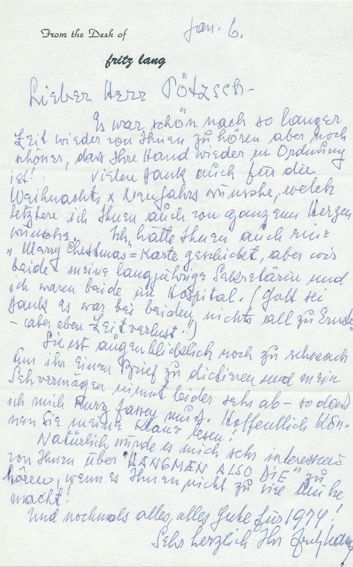 From the Desk of
fritz lang
Jan. 6.
Lieber Herr Pötzsch –
Es war schön nach so langer
Zeit wieder von Ihnen zu hören aber noch
schöner, dass Ihre Hand wieder in Ordnung
ist! Vielen Dank auch für die
Weihnachts & Neujahrs wünsche, welch
letztere ich Ihnen auch von ganzem Herzen
wünsche. Ich hatte Ihnen auch eine
"Merry Christmas"=Karte geschickt, aber wir
beide – meine langjährige Sekretärin und
ich waren beide im Hospital. (Gott sei
Dank es war bei beiden nichts all zu Ernstes
– aber eben Zeitverlust!)
Sie ist augenblicklich noch zu schwach
um ihr einen Brief zu dictieren und mein
Sehvermögen nimmt leider sehr ab – so dass
ich mich kurz fassen muss. Hoffentlich kön-
nen Sie meine Klaue lesen!
Natürlich würde es mich sehr interessieren
von Ihnen über "HANGMEN ALSO DIE" zu
hören, wenn es Ihnen nicht zu viel Mühe
macht!
Und nochmals alles, alles Gute für 1974!
Sehr herzlich Ihr Fritz Lang